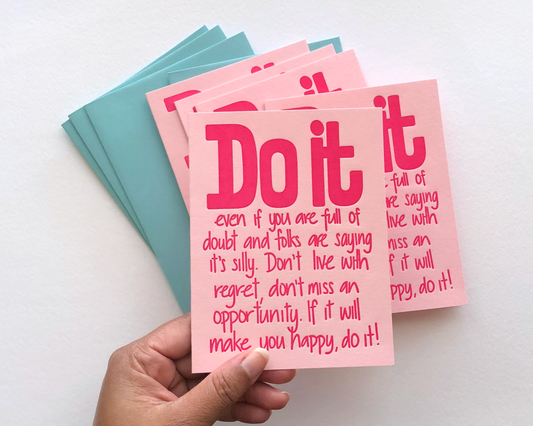 Do it
even if you are full of
doubt and folks are saying
it's silly. Don't live with
regret, don't miss an
opportunity. If it will
make you happy, do it!
it
full of
are saying
live with
miss an
f it will
appy, do it!